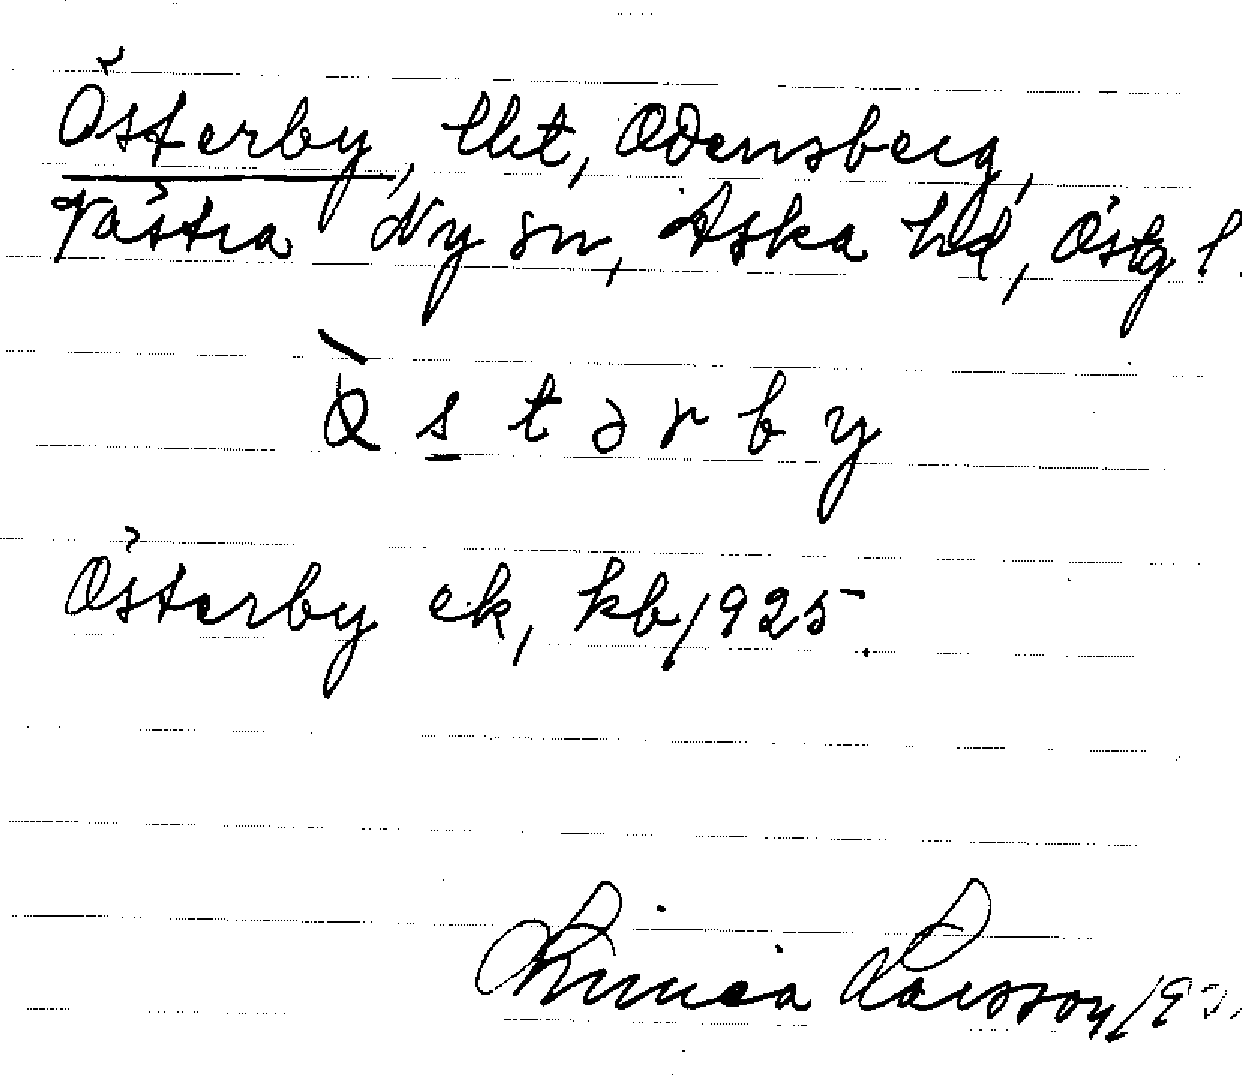 Österby, lht, Odensberg,
Västra Ny sn, Aska hd, Östg l.
Ö s t ə r b y
Österby ek, kb/1925.
Linnea Larsson